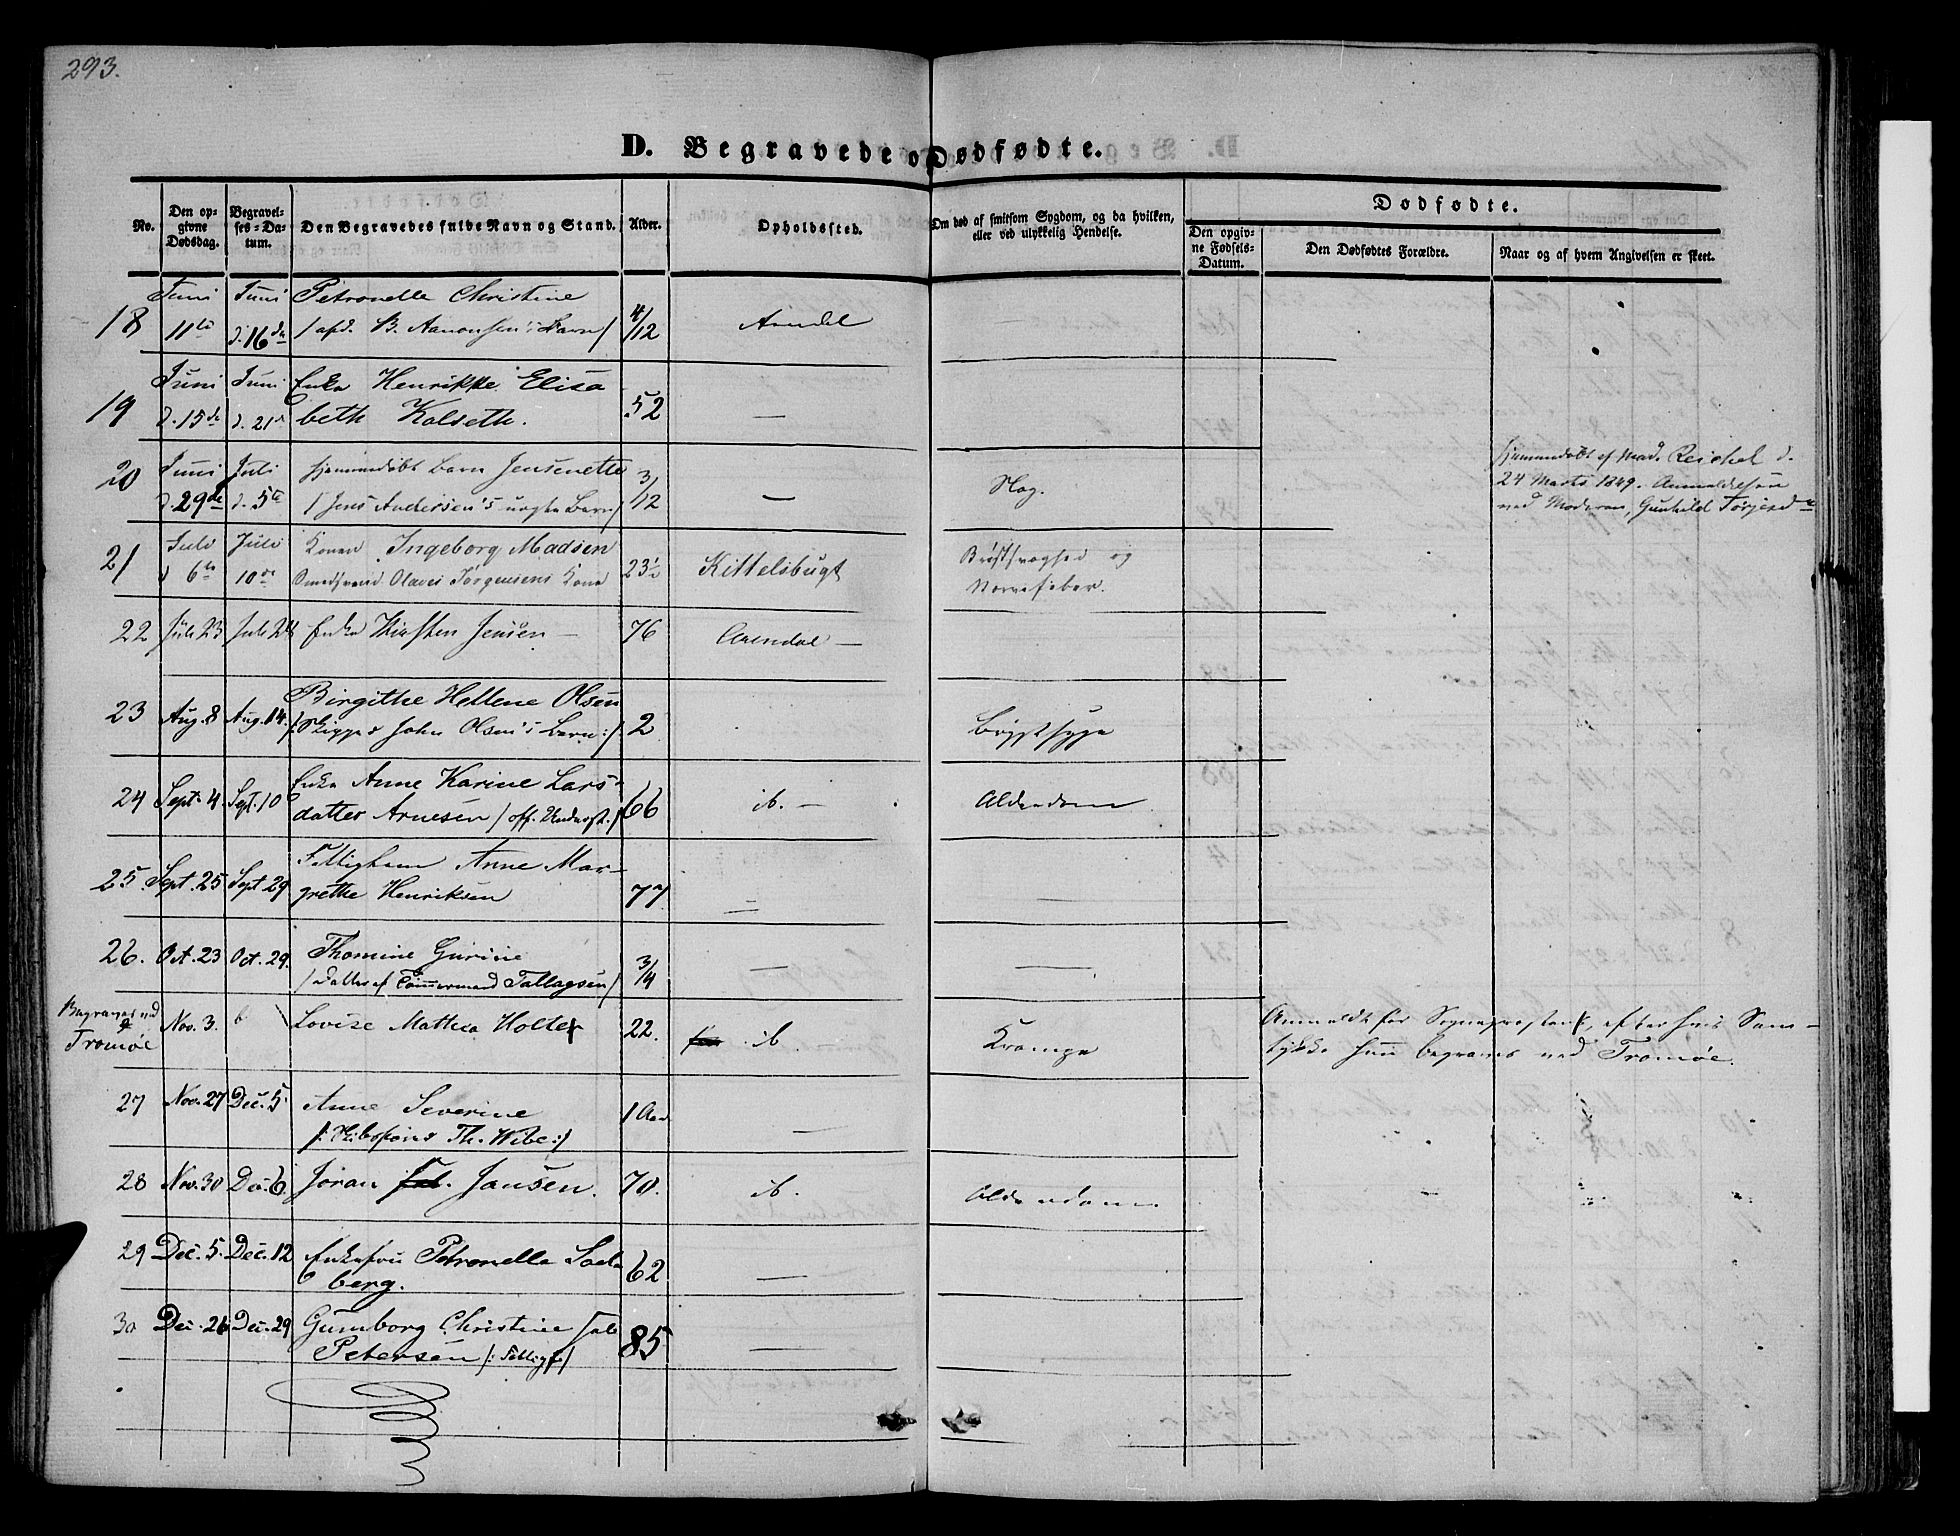 293.
D. Begravede o
Dødfødte.
No.
Den op-
givne
Dødsdag.
Begravel-
ses-Da-
tum.
Den Begravedes fulde Navn og Stand.
Alder.
Opholdssted.
Om død af smitsom Sygdom, og da hvilken,
eller ved ulykkelig Hendelse.
Dødfødte.
Den opgiv-
ne Fødsels-
Datum.
Den Dødfødtes Forældre.
Naar og af hvem Angivelsen er skeet.
18 Juni Juni Petronelle Christine 4/12 Arendal
11te d. 16de / B. Aanonsens Barn /
19 Juni Juni Enke Henrikke Elisa 52 —
d. 15de d. 21d beth Kolseth.
20 Juni Juli hjemmedøbt Barn Jensenette 3/12 — hjemmedøbt af Mad. Reichel d.
d. 29de d. 5te / Jens Andersen's uægte Barn / 24 Marts 1849. Anmeldelsen
ved Moderen, Gunhild Torjesd
21 Juli Juli Konen Ingeborg Madsen 23½ Kittelsbugt Brøstsvaghed og
d 6te 10de Smedsvend Olaves Jørgensens Kone Nervefeber.
22 Juli 23 Juli 28 Enke Kirsten Jensen — 76 Arendal —
23 Aug. 8 Aug. 14. Birgithe Hellene Olsen 2 Brystsyge
/: John Olsen's Barn :/
24 Sept. 4 Sept. 10 Enke Anne Karine Lars- 66 ib. — Alderdom
datter Arnesen / off. Underst. /
25. Sept. 25 Sept 29 Fattiglem Anne Mar- 77 —
grethe Henriksen
26. Oct. 23 Oct. 29. Thomine Gurine 3/4 — —
/ Datter af Tømmermand Tallagsen /
Begraves ved
Tromøe Nov. 3. Lovise Mathea Holter 22. ib. Krampe Anmeldt for Sognepresten, efter hvis Sam-
tykke hun begraves ved Tromøe.
27 Nov. 27 Dec. 5 Anne Severine 1 Aar —
/: Th. Wibe :/
28 Nov. 30 Dec. 6. Joran Jansen. 70. ib. Alderdom.
29 Dec. 5. Dec. 12 Enkefru Petronelle
berg. 62 —
30 Dec. 26 Dec. 29 Gumborg Christine
Petersen 85 —